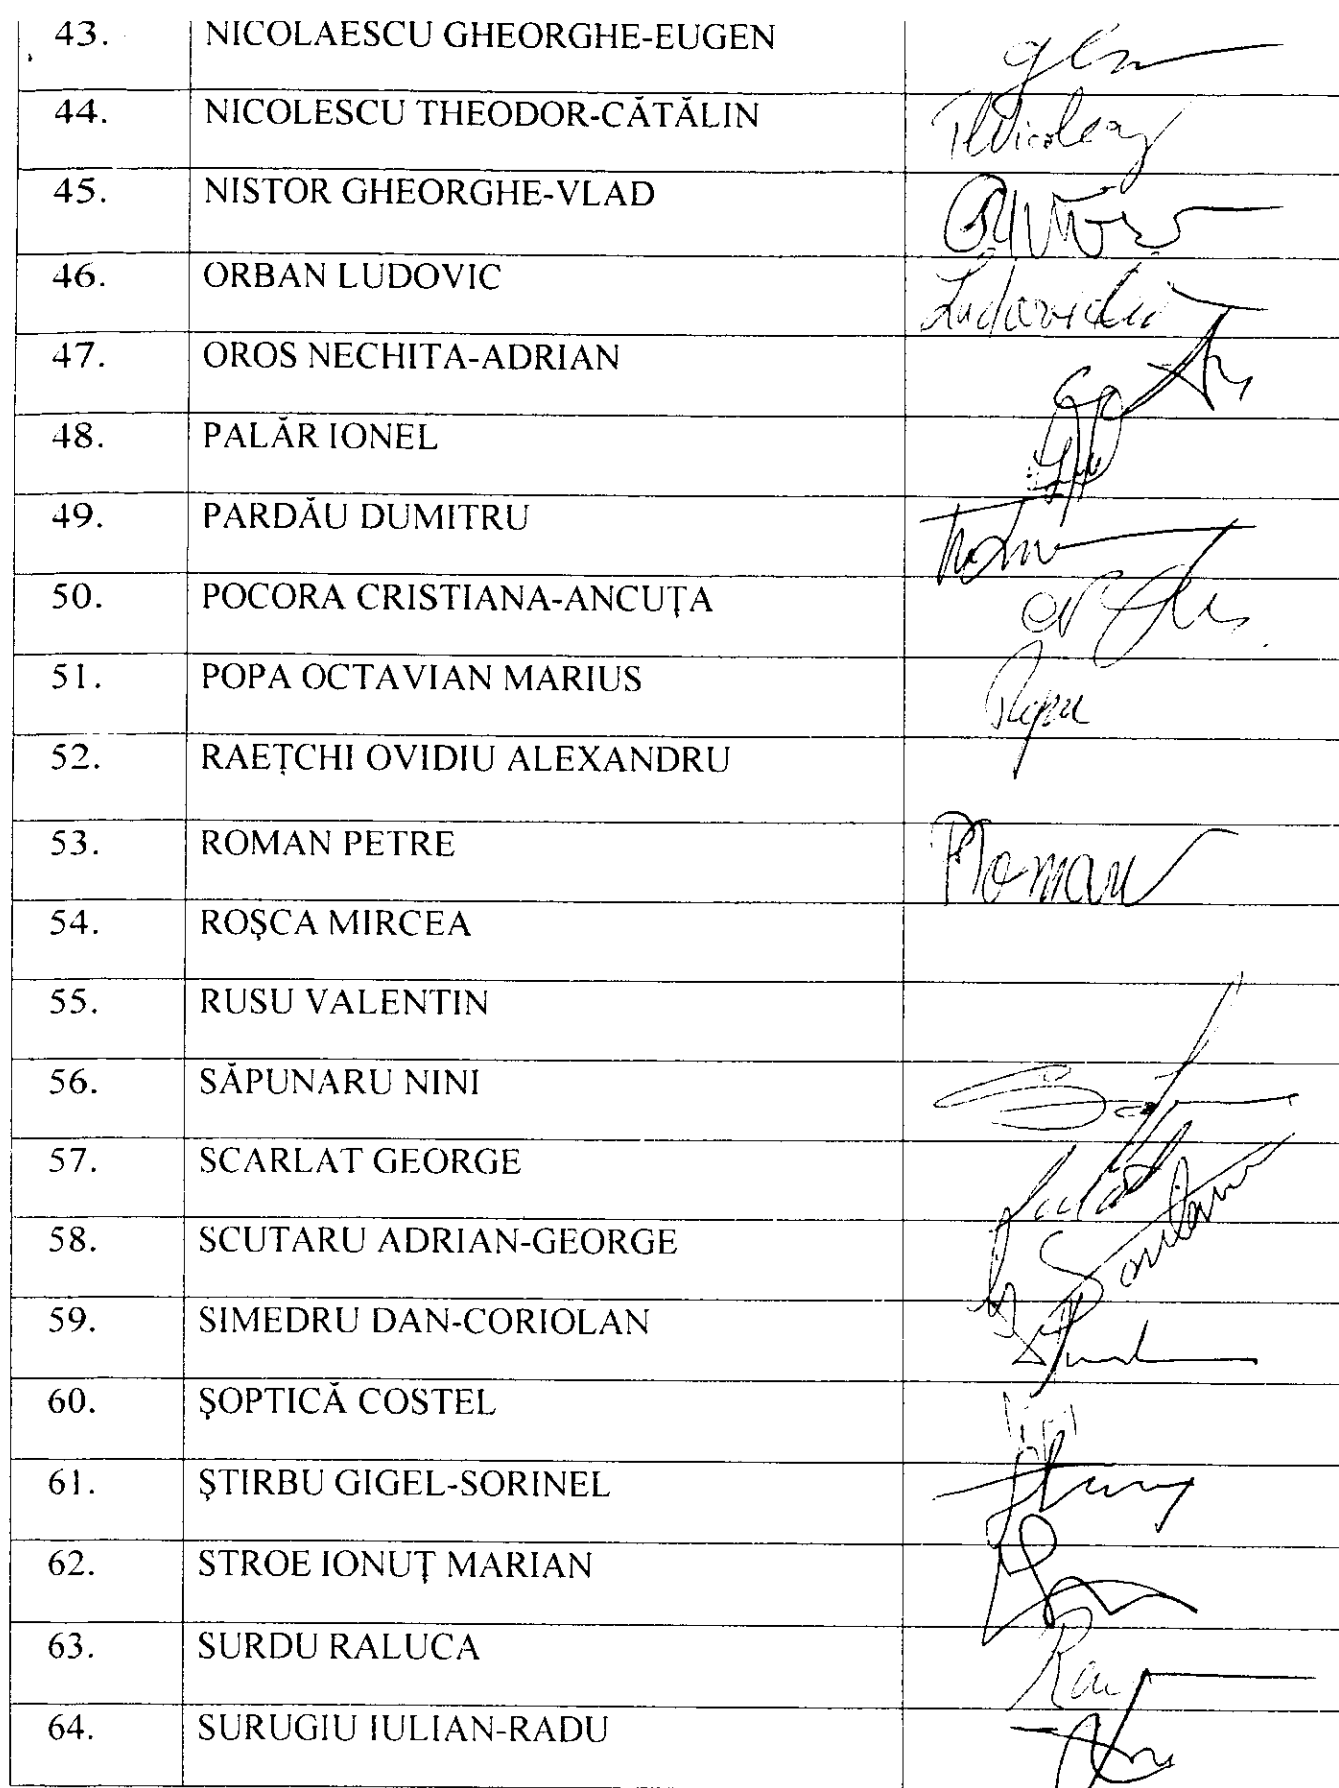 43. NICOLAESCU GHEORGHE-EUGEN
44. NICOLESCU THEODOR-CĂTĂLIN
45. NISTOR GHEORGHE-VLAD
46. ORBAN LUDOVIC
47. OROS NECHITA-ADRIAN
48. PALĂR IONEL
49. PARDĂU DUMITRU
50. POCORA CRISTIANA-ANCUŢA
51. POPA OCTAVIAN MARIUS
52. RAEŢCHI OVIDIU ALEXANDRU
53. ROMAN PETRE PRoman
54. ROŞCA MIRCEA
55. RUSU VALENTIN
56. SĂPUNARU NINI
57. SCARLAT GEORGE
58. SCUTARU ADRIAN-GEORGE
59. SIMEDRU DAN-CORIOLAN
60. ŞOPTICĂ COSTEL
61. ŞTIRBU GIGEL-SORINEL
62. STROE IONUŢ MARIAN
63. SURDU RALUCA
64. SURUGIU IULIAN-RADU